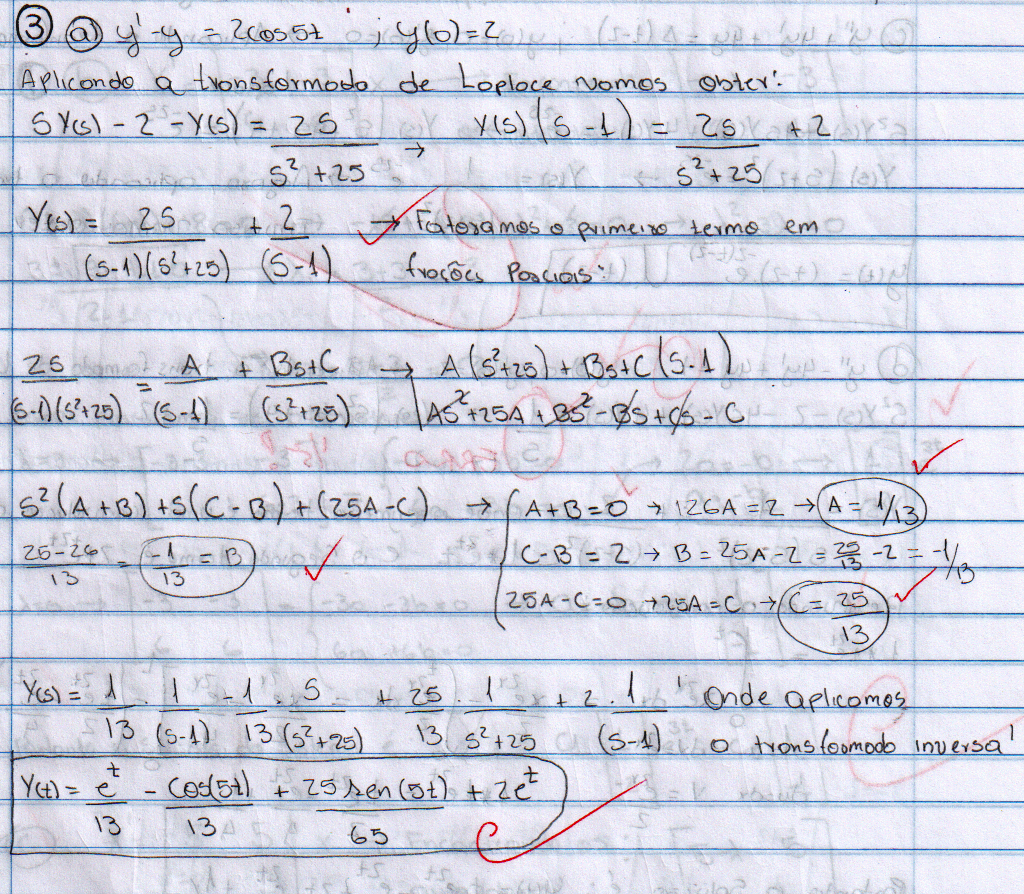 ③ ⓐ y' - y = 2cos5t ; y(0)=2
Aplicando a transformada de Laplace vamos obter:
SY(s) - 2 - Y(s) = 2S/(S² + 25) → Y(s)(S - 1) = 2s/(S² + 25) + 2
Y(s) = 2S/((S-1)(S²+25)) + 2/(S-1) → Fatoramos o primeiro termo em
frações Parciais:
2S/((S-1)(S²+25)) = A/(S-1) + (Bs+C)/(S²+25) → A(S²+25) + Bs+C(S-1)
AS² + 25A + BS² - BS + CS - C
S²(A+B) + S(C-B) + (25A-C) → { A+B=0 → 26A=2 → A = 1/13
(25-26)/13 = -1/13 = B C-B = 2 → B = 25A-2 = 25/13 - 2 = -1/13
25A-C=0 → 25A=C → C = 25/13
Y(s) = 1/13 . 1/(S-1) - 1/13 . S/(S²+25) + 25/13 . 1/(S²+25) + 2 . 1/(S-1) ' Onde aplicamos
a transformada inversa'
Y(t) = e^t/13 - cos(5t)/13 + 25 sen(5t)/65 + 2e^t
C